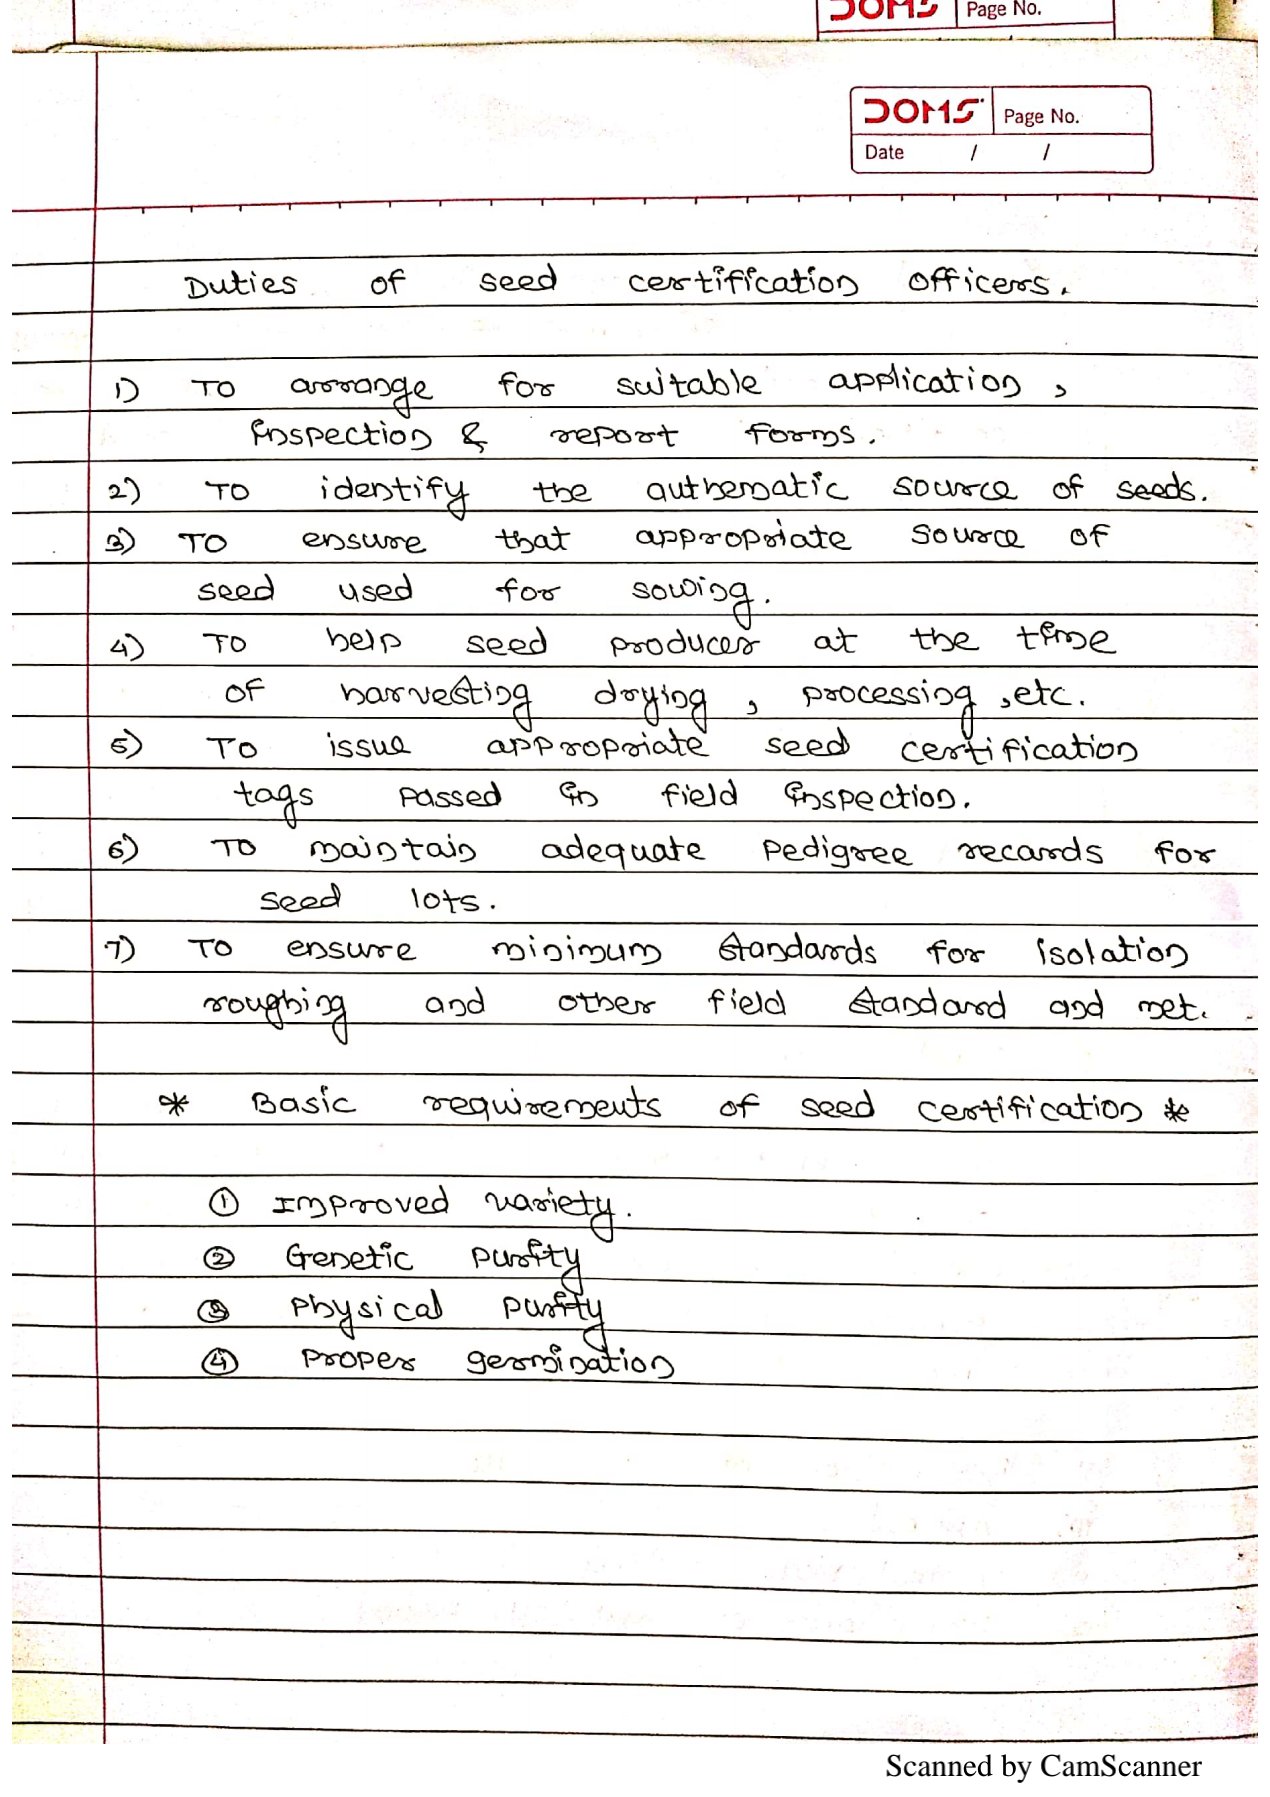 DOMS Page No.
DOMS Page No.
Date / /
Duties of seed certification officers.
1) To arrange for suitable application,
inspection & report forms.
2) To identify the authematic source of seeds.
3) To ensure that appropriate source of
seed used for sowing.
4) To help seed producer at the time
of harvesting drying, processing, etc.
5) To issue appropriate seed certification
tags passed in field inspection.
6) To maintain adequate pedigree recards for
seed lots.
7) To ensure minimum standards for isolation
roughing and other field standard and met.
* Basic requirements of seed certification *
① Improved variety.
② Genetic purity
③ Physical purity
④ Proper germination
Scanned by CamScanner